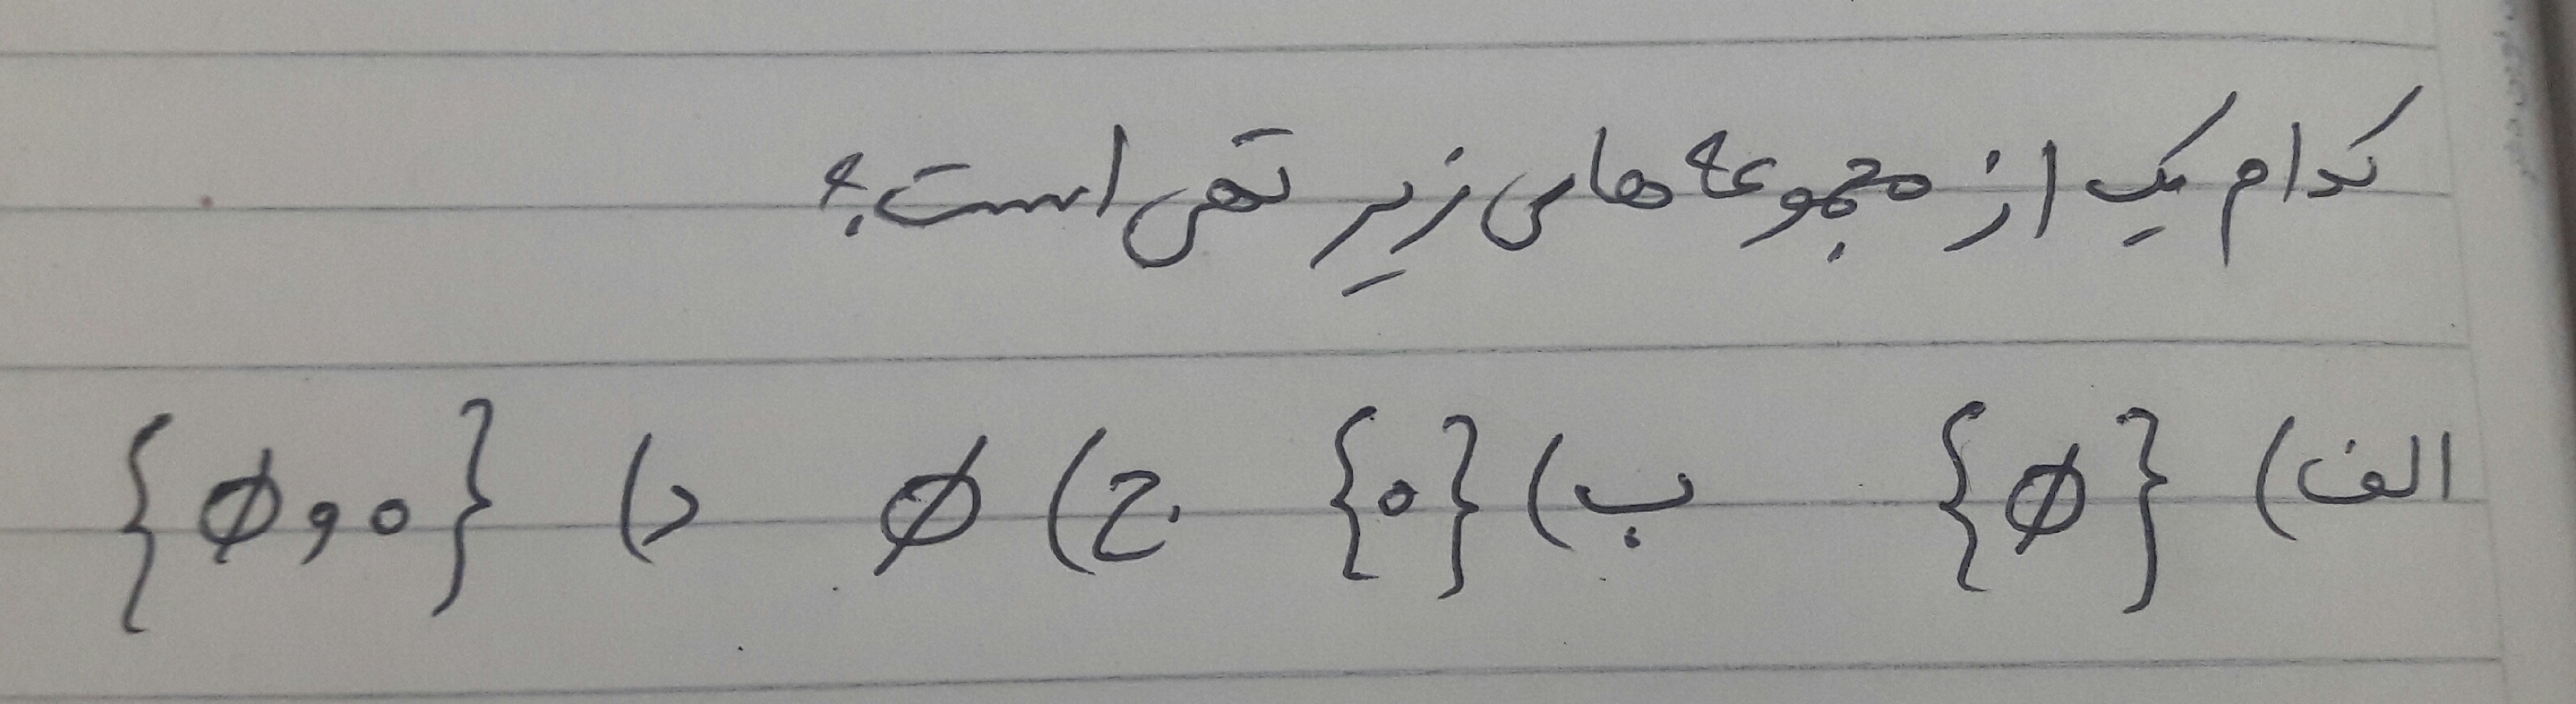 کدام یک از مجموعه های زیر تهی است؟
الف) {∅} ب) {۰} ج) ∅ د) {∅ و ۰}